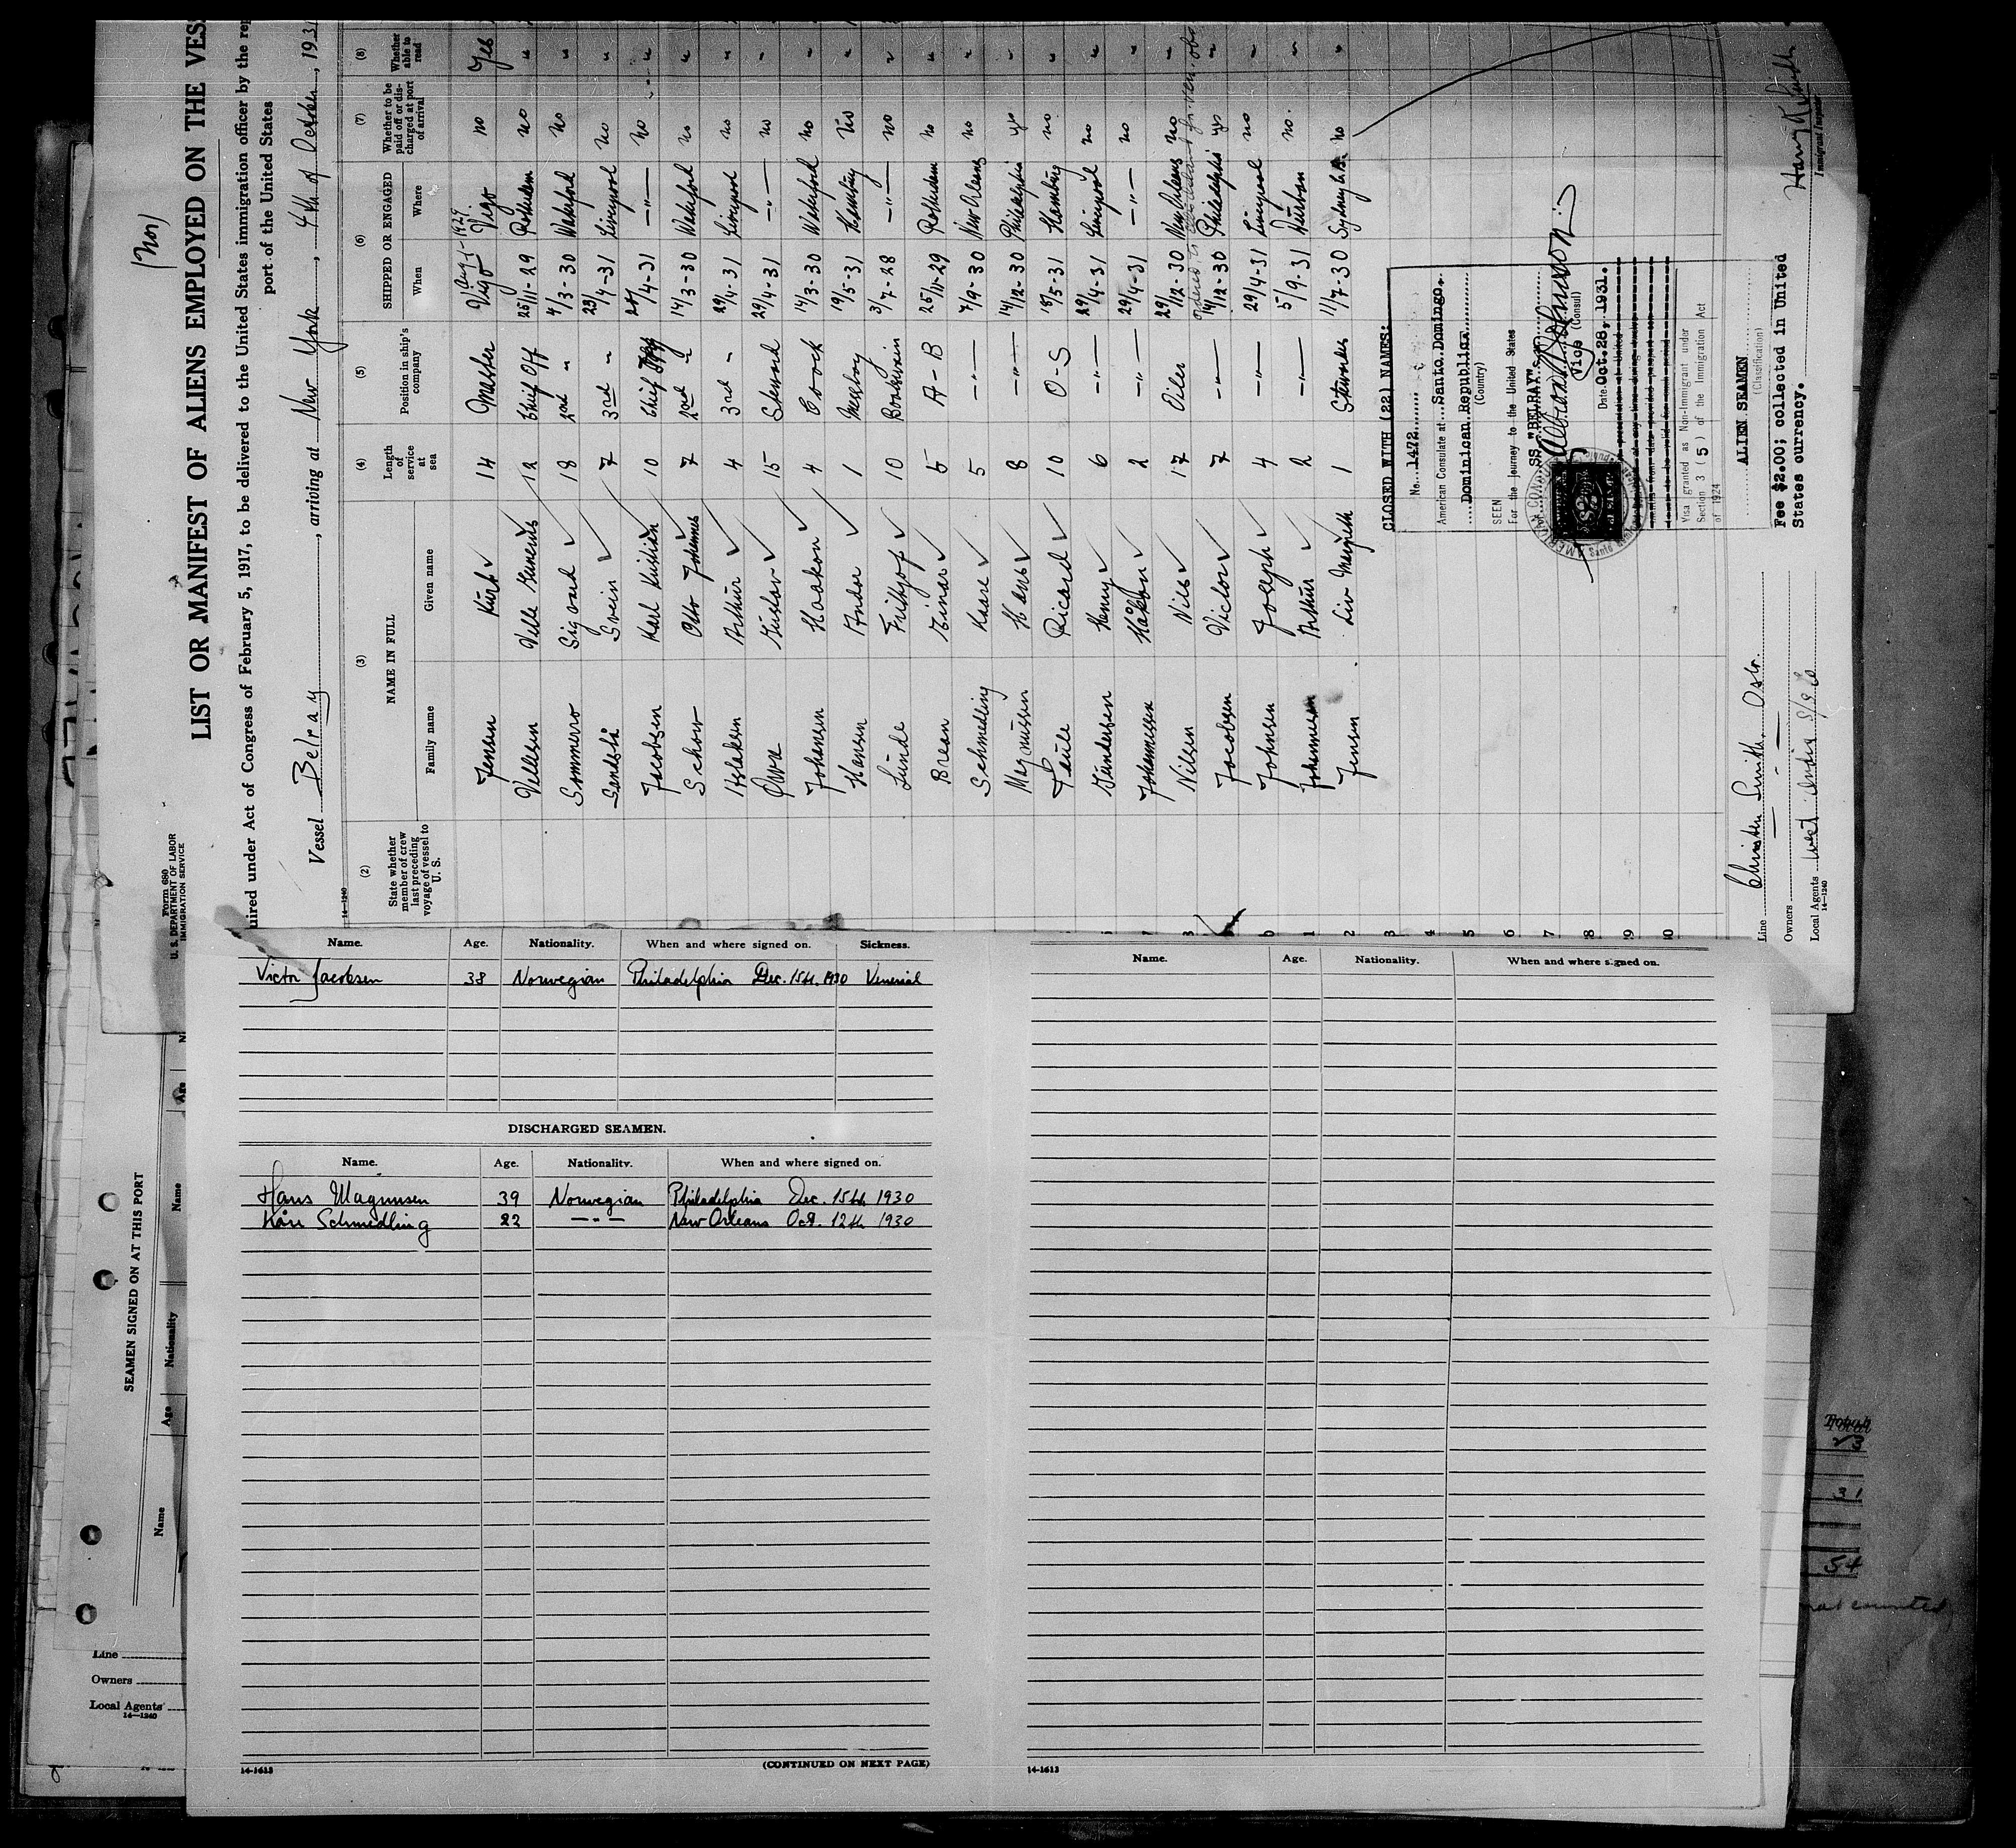 (Nor)
Form 680
U. S. DEPARTMENT OF LABOR
IMMIGRATION SERVICE
LIST OR MANIFEST OF ALIENS EMPLOYED ON THE VES
uired under Act of Congress of February 5, 1917, to be delivered to the United States immigration officer by the rep
port of the United States
Vessel Belray, arriving at New York, 4th of October, 193
14-1240
(2) (3) (4) (5) (6) (7) (8)
State whether member of crew last preceding voyage of vessel to U. S.
NAME IN FULL
Family name Given name
Length of service at sea
Position in ship's company
SHIPPED OR ENGAGED
When Where
Whether to be paid off or discharged at port of arrival
Whether able to read
Jensen Kurt 14 Master Vigo 1 Aug 1929 Vigo no Yes
Vellesen 12 Chief Off 25/11-29 Rotterdam no "
Sommero Sigvard 18 2nd " 4/3-30 Waterford no "
Sandsbå Svein 7 3rd " 23/4-31 Liverpool no "
Jacobsen Karl Kristian 10 Chief /4-31 -"- no "
Schow Otto Johannes 7 2nd " 14/3-30 Waterford no "
Aslaksen Arthur 4 3rd " 29/4-31 Liverpool no "
Gustav 15 Steward 29/4-31 -"- no "
Johansen Haakon 4 Coock 14/3-30 Waterford no "
Hansen Andor 1 Messboy 19/5-31 Hamburg no "
Lunde Frithjof 10 Boatswain 3/7-28 -"- no "
Brean Einar 5 A-B 25/11-29 Rotterdam no "
Schmedling Kaare 5 -"- 7/9-30 New Orleans no "
Magnussen Hans 8 -"- 14/12-30 Philadelphia yes "
Ricard 10 O-S 18/5-31 Hamburg no "
Gundersen Henry 6 -"- 29/4-31 Liverpool no "
Johannessen Håkon 2 -"- 29/4-31 -"- no "
Nilsen Nils 17 Oiler 29/12-30 New Orleans no "
Jacobsen Victor 7 -"- 14/12-30 Philadelphia yes "
Johnsen Joseph 4 -"- 29/4-31 Liverpool no "
Johannesen Arthur 2 -"- 5/9-31 Durban no. "
Jensen Liv Margith 1 Stewardes 11/7-30 Sydney no "
CLOSED WITH (22) NAMES:
No. 1472
American Consulate at Santo Domingo,
Dominican Republic
(Country)
SEEN
For the journey to the United States
SS. "BELRAY"
Vice (Consul)
Date Oct. 28, 1931.
Visa granted as Non-Immigrant under
Section 3 ( 5 ) of the Immigration Act
of 1924
ALIEN SEAMEN
(Classification)
Fee $2.00; collected in United
States currency.
Line Christen Smith, Oslo.
Owners -"-
Local Agents West India S/S Co
14-1240
Immigrant Inspector
Name. Age. Nationality. When and where signed on. Sickness.
Victor Jacobsen 38 Norwegian Philadelphia Dec. 15th. 1930 Venerial
DISCHARGED SEAMEN.
Name. Age. Nationality. When and where signed on.
Hans Magnusen 39 Norwegian Philadelphia Dec. 15th 1930
Kåre Schmedling 22 -"- New Orleans Oct. 12th 1930
(CONTINUED ON NEXT PAGE)
14-1613
Name. Age. Nationality. When and where signed on.
14-1613
SEAMEN SIGNED ON AT THIS PORT
Name Age Nationality Name
Line
Owners
Local Agents
14-1240
Total
31
54
not counted